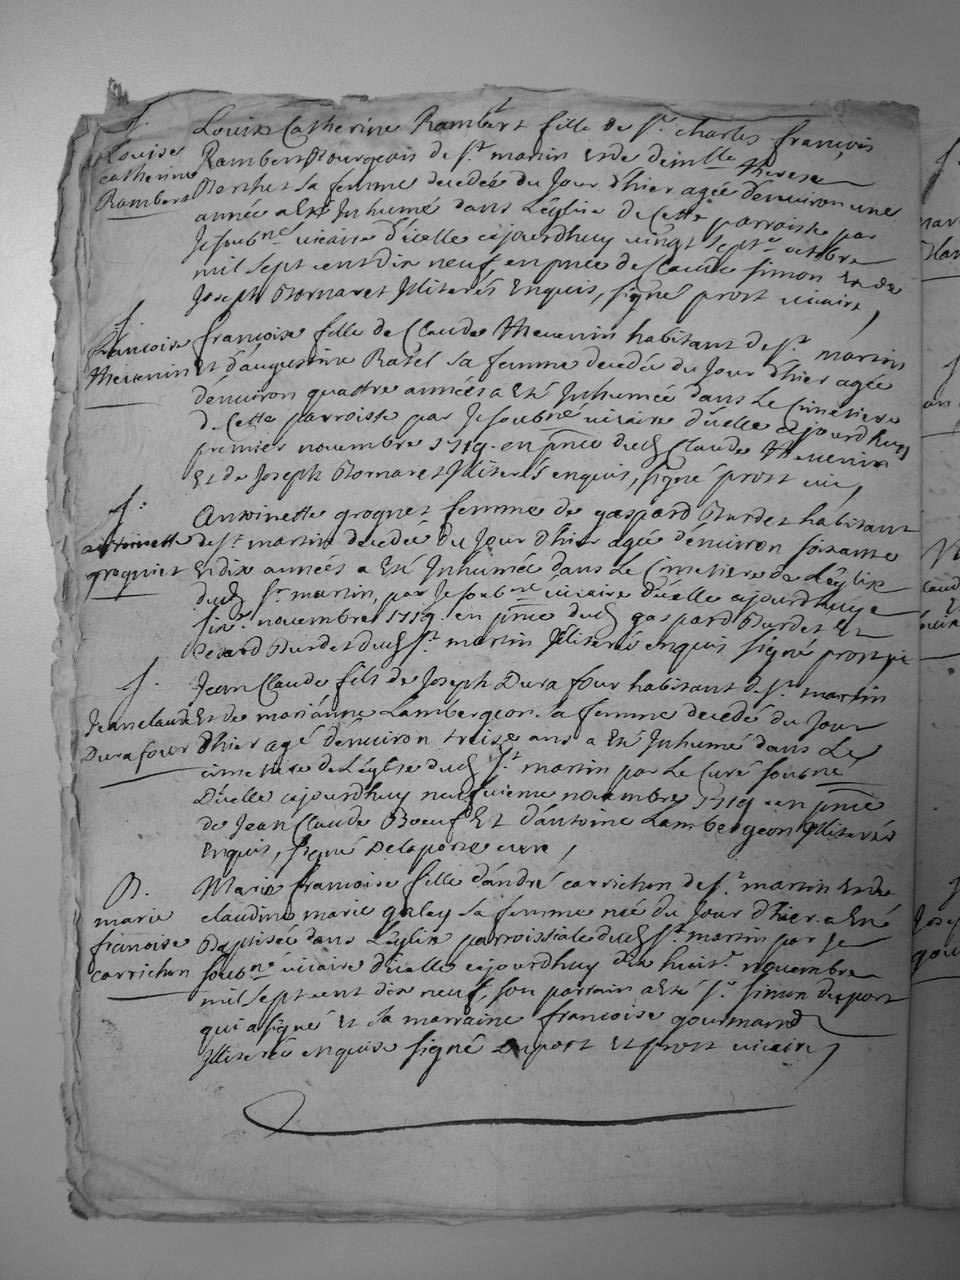 S.
Louise
catherine
Rambert
Louise Catherine Rambert fille de Sr. charles françois
Rambert Bourgeois de St martin et de demlle therese
Berthet sa femme decedée du Jour d'hier agée d'environ une
année a Eté Inhumé dans L'Eglise de Cette parroisse par
Je soubné vicaire d'icelle cejourdhuy vingt sept octobre
mil sept cent dix neuf, en pnce de Claude simon et de
Joseph Bornaret Illiterés Enquis, signé prost vicaire,
S.
francoise
thevenin
françoise fille de Claude thevenin habitant de St martin
Et d'augustine Ravel sa femme decedée du Jour d'hier agée
d'environ quattre années a Eté Inhumée dans Le Cimetiere
de Cette parroisse par Je soubné vicaire d'icelle cejourdhuy
premier novembre 1719. en pnce dud Claude thevenin
Et de Joseph Bornaret Illiterés enquis, signé prost vic,
S.
antoinette
grognet
Antoinette grognet femme de gaspard Burdet habitant
de St martin decedée du Jour d'hier agée d'environ soixante
Et dix années a Eté Inhumée dans Le Cimetiere de L'Eglise
dud St martin, par Je soubné vicaire d'icelle cejourdhuy
six. novembre 1719. en pnce dud gaspard Burdet Et
Burdet dud St martin Illiterés enquis signé prost vi
S.
Jean claude
Durafour
Jean Claude fils de Joseph Durafour habitant de St martin
Et de marianne Lambergeon sa femme decedé du Jour
d'hier agé d'environ treise ans a Eté Inhumé dans Le
cimetiere de L'église dud St martin par Le Curé soubné
D'icelle cejourdhuy neufvieme novembre 1719 en pnce
de Jean Claude Boeuf Et d'antoine Lambergeon Illiterés
Enquis, signé Delaporte cure,
B.
marie
francoise
carrichon
Marie francoise fille d'andré carrichon de St martin Et de
claudine marie galay sa femme née du Jour d'hier a Eté
Baptisée dans L'Eglise parroissiale dud St martin par Je
soubné vicaire d'icelle cejourdhuy dix huict. novembre
mil sept cent dix neuf, son parrain a Eté Sr. simon duport
qui a signé Et sa marraine francoise gourmand
Illiterée enquise signé duport Et prost vicaire,